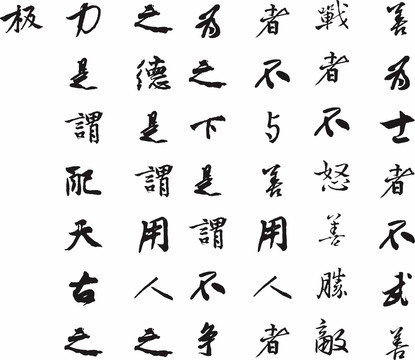 善为士者不武善
戰者不怒善勝敵
者不与善用人者
为之下是謂不争
之德是謂用人之
力是謂配天古之
板